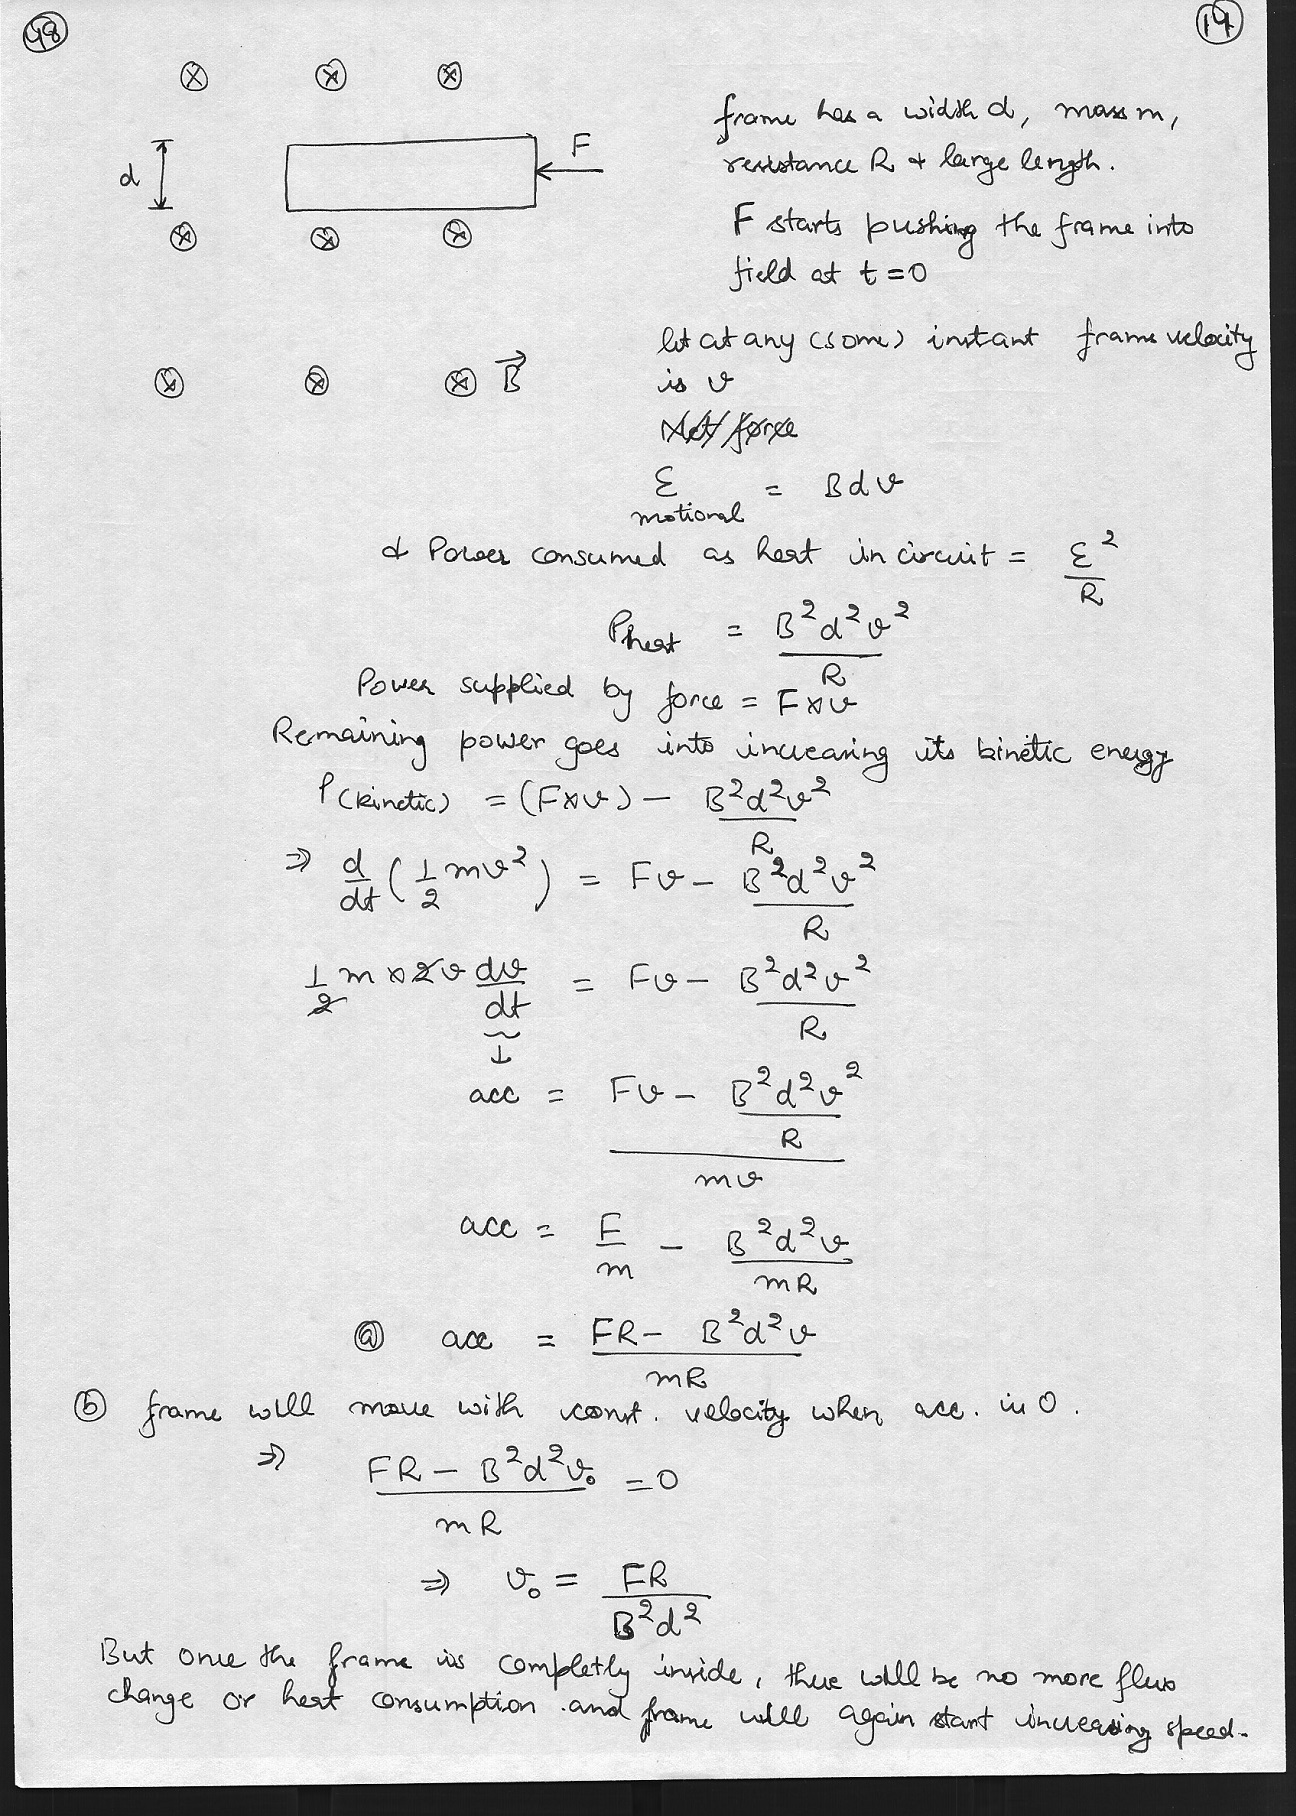 48
14
⊗ ⊗ ⊗
d
F
⊗ ⊗ ⊗
⊗ ⊗ ⊗ B⃗
frame has a width d, mass m,
resistance R & large length.
F starts pushing the frame into
field at t=0
let at any (some) instant frame velocity
is v
Net force
ε motional = Bdv
& Power consumed as heat in circuit = ε²/R
Pheat = B²d²v²/R
Power supplied by force = F×v
Remaining power goes into increasing its kinetic energy
P(kinetic) = (F×v) - B²d²v²/R
⇒ d/dt (1/2 mv²) = Fv - B²d²v²/R
1/2 m × 2v dv/dt = Fv - B²d²v²/R
↓
acc = (Fv - B²d²v²/R)/mv
acc = F/m - B²d²v/mR
ⓐ acc = (FR - B²d²v)/mR
ⓑ frame will move with const. velocity when acc. is 0.
⇒ (FR - B²d²v₀)/mR = 0
⇒ v₀ = FR/B²d²
But once the frame is completly inside, there will be no more flux
change or heat consumption and frame will again start increasing speed.